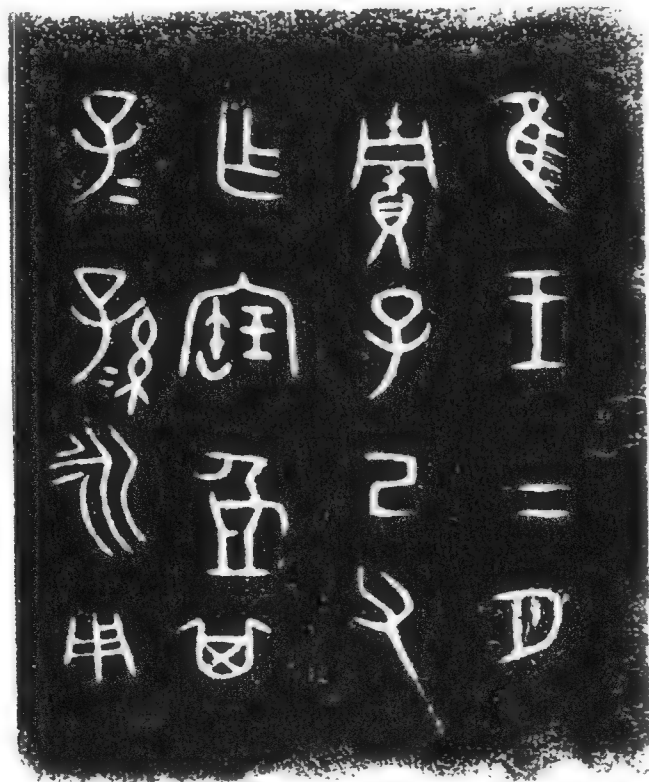 隹王二月
貯子己父
乍寶盂其
子=孫=永用